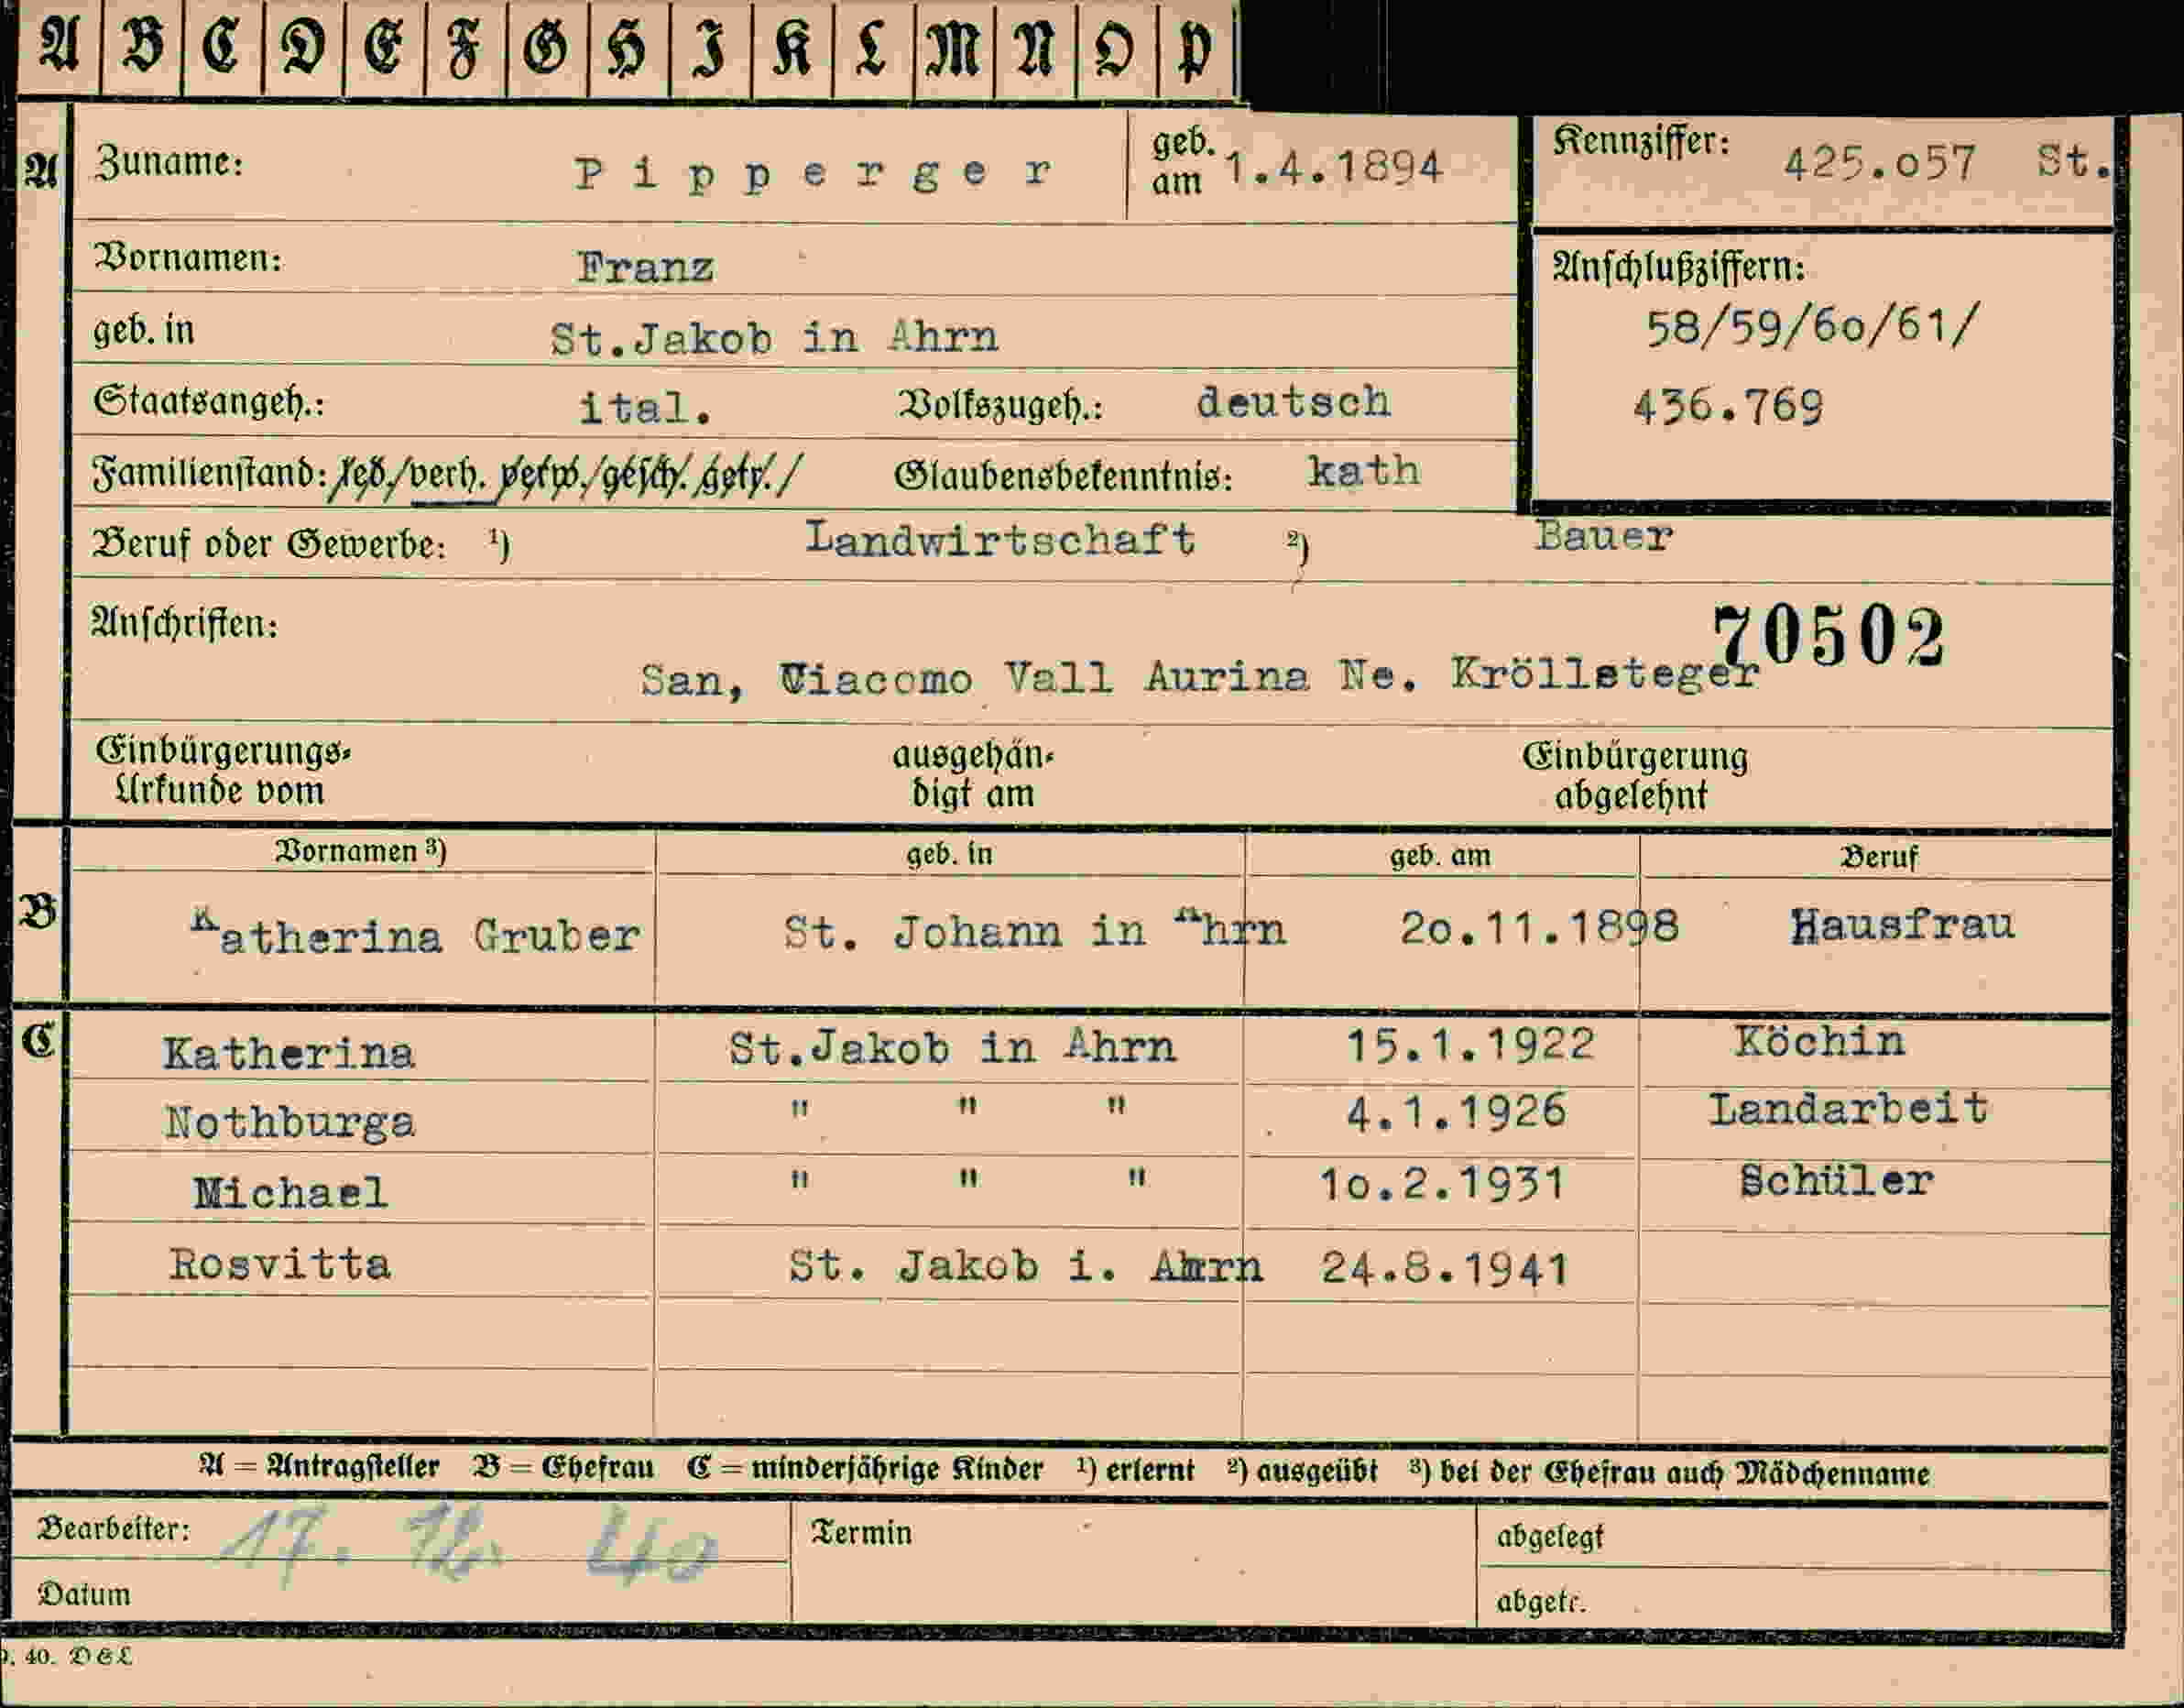 A B C D E F G H I K L M N O P
A Zuname: Pipperger geb. am 1.4.1894 Kennziffer: 425.o57 St.
Vornamen: Franz Anschlußziffern:
geb. in St.Jakob in Ahrn 58/59/6o/61/
Staatsangeh.: ital. Volkszugeh.: deutsch 436.769
Familienstand: led./verh. verw./gesch./getr./ Glaubensbekenntnis: kath
Beruf oder Gewerbe: 1) Landwirtschaft 2) Bauer
Anschriften: 70502
San, Giacomo Vall Aurina Ne. Kröllsteger
Einbürgerungs- ausgehän- Einbürgerung
Urkunde vom digt am abgelehnt
Vornamen 3) geb. in geb. am Beruf
B Katherina Gruber St. Johann in Ahrn 2o.11.1898 Hausfrau
C Katherina St.Jakob in Ahrn 15.1.1922 Köchin
Nothburga " " " 4.1.1926 Landarbeit
Michael " " " 1o.2.1931 Schüler
Rosvitta St. Jakob i. Ahrn 24.8.1941
A = Antragsteller B = Ehefrau C = minderjährige Kinder 1) erlernt 2) ausgeübt 3) bei der Ehefrau auch Mädchenname
Bearbeiter: 17. 12. 40 Termin abgelegt
Datum abgetr.
40. D&L